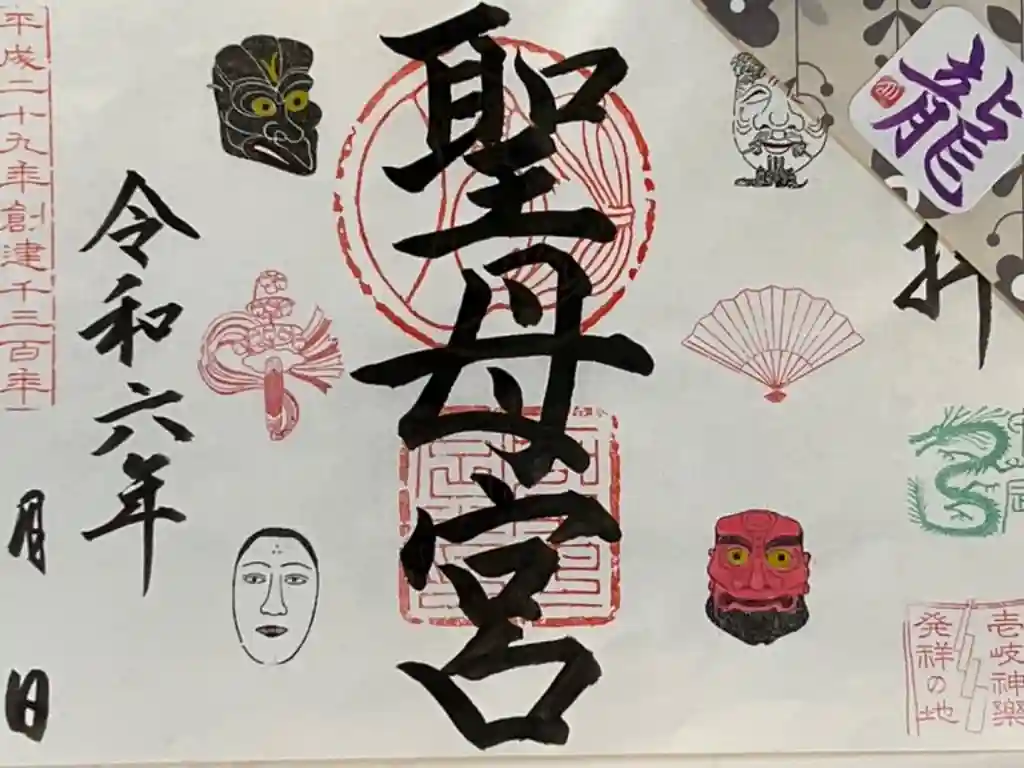 龍
拝
壱岐神樂
発祥の地
聖母宮
令和六年
月 日
平成二十九年創建千三百年